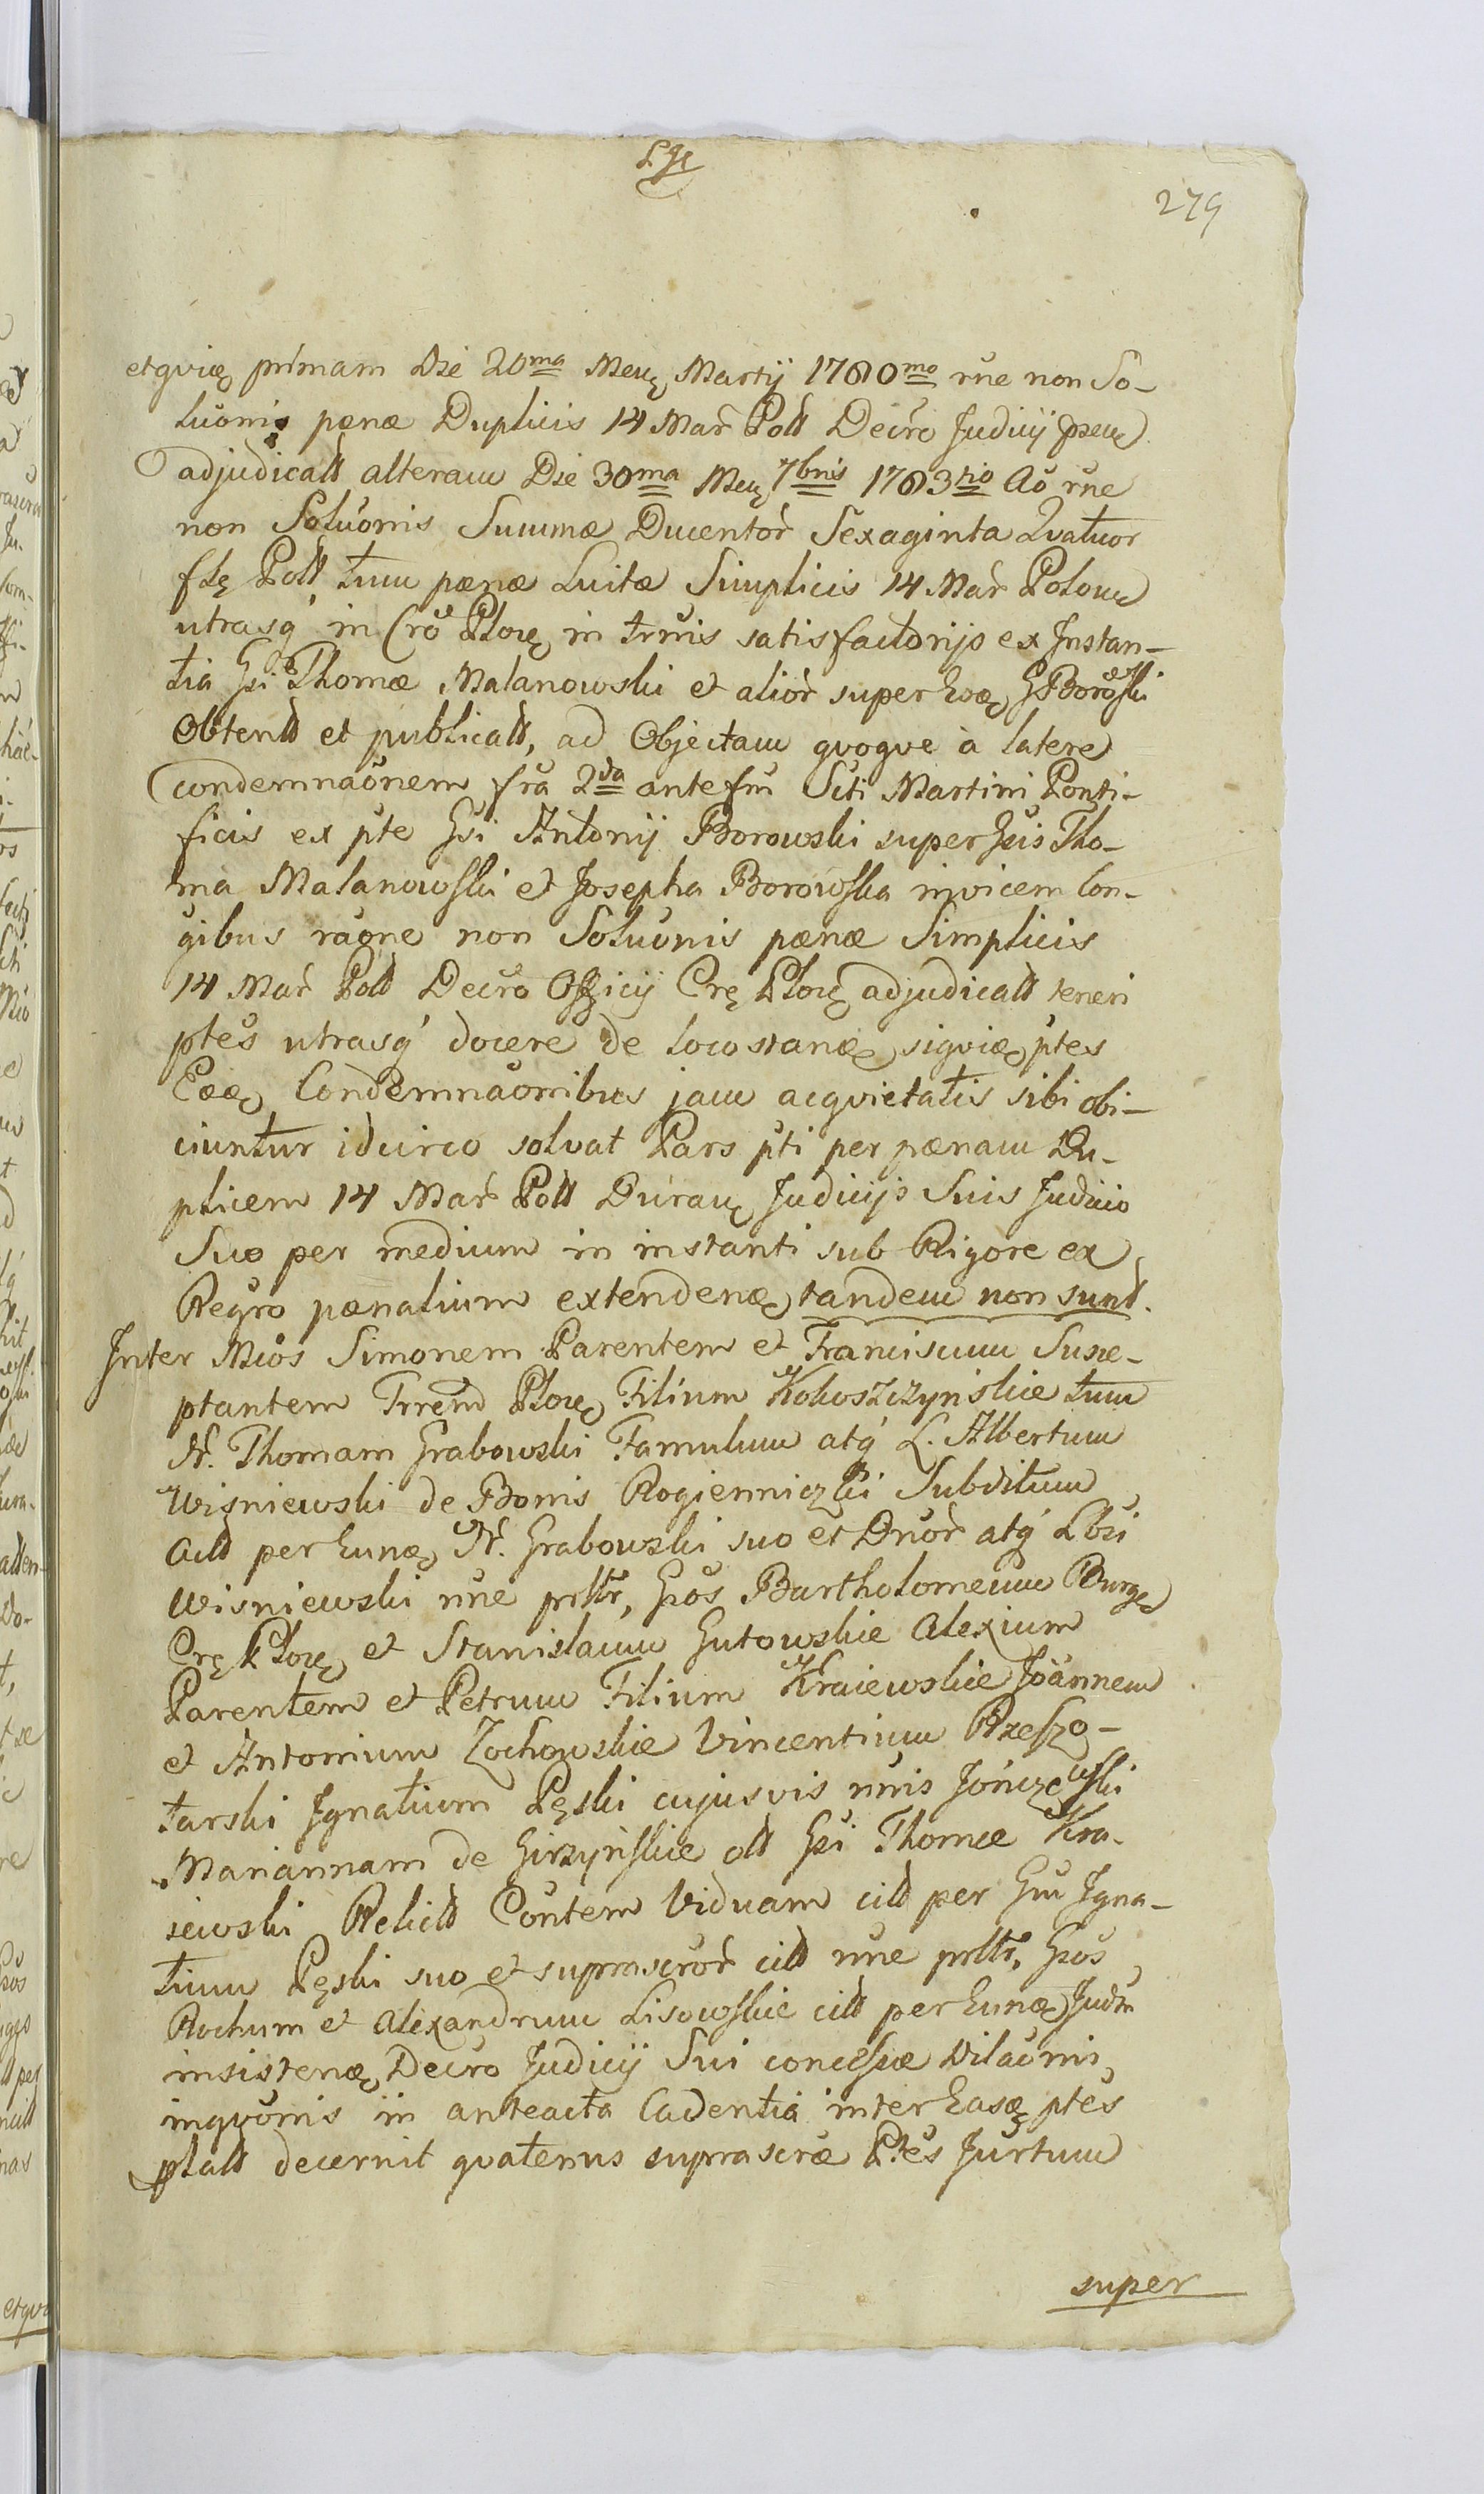 Lge
279
etqvię primam Die 20ma Menę Martij 1780mo rñe non So-
luõnis pænæ Duplicis 14 Mar Poll Decro Judicij prnę
adjudicatt alteram Die 30ma Menę 7bris 1783tio Ao rñe
non Soluõnis Summæ Ducentor Sexaginta Qvatuor
flę Poll, tum pænæ Luitæ Simplicis 14 Mar Polonę
utrasq́ in Cro Plocę in trmis satisfactorijs ex Instan-
tia Gsi Thomæ Malanowski et alior super Eoę GBorowski
Obtentt et publicatt, ad Objectam qvoqve à latere
Condemnaõnem fra 2da ante fm Scti Martini Ponti-
ficis ex pte Gsi Antonij Borowski super Gsis Tho-
ma Malanowski et Josepha Borowska invicem Con-
gibus raõne non Soluõnis pænæ Simplicis
14 Mar Poll Decro Officij Crę Plocę adjudicatt teneri
ptes utrasq́ docere de locostanę, siqvię ptes
Eæę Condemnaõnibus jam acqvietatis sibi obi-
ciuntur idcirco solvat Pars pti per pænam Du-
plicem 14 Mar Poll Duranę Judicijs Suis Judicio
Suo per medium in instanti sub Rigore ex
Regro pænalium extendenę tandem non sunt.
Inter Mcos Simonem Parentem et Franciscum Susce-
ptantem Trrend Plocę Filium Kokoszczynskie tum
N. Thomam Grabowski Famulum atq́ L. Albertum
Wisniewski de Bonis Rogienniczki Subditum
Actt per Eunę N. Grabowski suo et Dnor atq́ Lbsi
Wisniewski nñe prttr, Gsos Bartholomeum Burgę
Crę Plocę et Stanislaum Gutowskie Alexium
Parentem et Petrum Filium Kraiewskie Joannem
et Antonium Zochowskie Vincentium Rzeszo-
tarski Ignatium Pęski cujusvis nñis Jonczewski
Mariannam de Girzynskie olt Gsi Thomæ Kra-
iewski Relictt Contem Viduam citt per Gm Igna-
tium Pęski suo et suprascror citt nñe prttr, Gsos
Rochum et Alexandrum Lisowskie citt per Eunę Judm
insistenę Decro Judicij Sui concessæ Dilaõnis
inqvõnis in anteacta Cadentia inter Easę ptes
platt decernit qvatenus suprascræ Ptes Jurtum
super